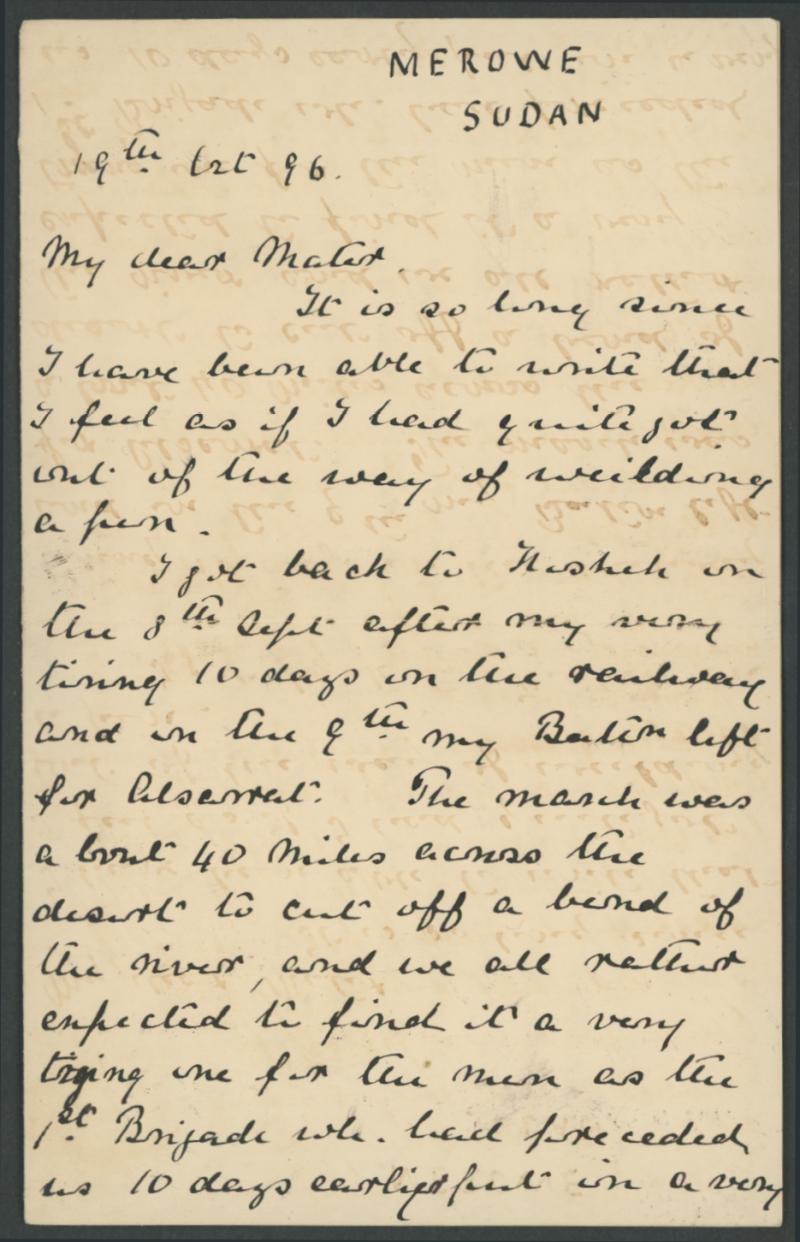 MEROWE
SUDAN
19th Oct 96.
My dear Mater.
It is so long since
I have been able to write that
I feel as if I had quite got
out of the way of weilding
a pen.
I got back to Kosheh on
the 8th Sept after my very
tiring 10 days on the railway
and on the 9th my Battn left
for Absarrat. The march was
about 40 miles across the
desert to cut off a bend of
the river, and we all rather
expected to find it a very
trying one for the men as the
1st Brigade wh. had preceded
us 10 days earlier put in a very